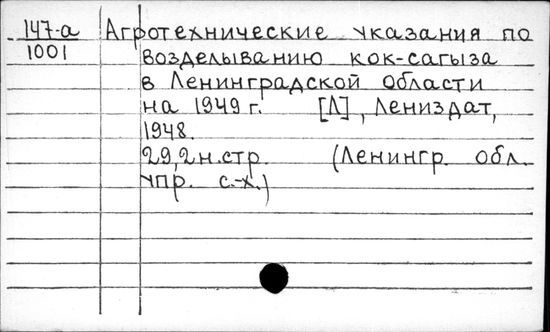 147-а Агротехнические указания по
1001 возделыванию кок-сагыза
в Ленинградской области
на 1949 г. [Л], Лениздат,
1948.
29,2 н.стр. (Ленингр. обл.
упр. с.-х.)